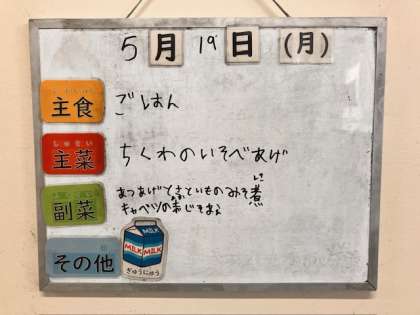 5月19日(月)
主食
ごはん
しゅさい
主菜
ちくわのいそべあげ
副菜
あつあげとさといものみそ煮
キャベツのあおじそあえ
その他
MILK MILK
ぎゅうにゅう